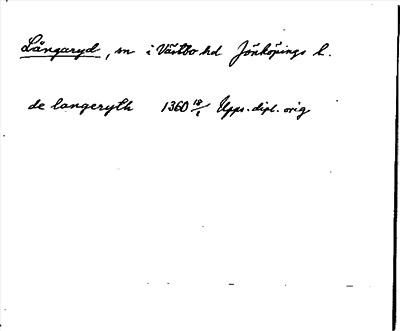 Långaryd, sn i Västbo hd Jönköpings l.
de langeryth 1360 18/2 Upps. dipl. orig